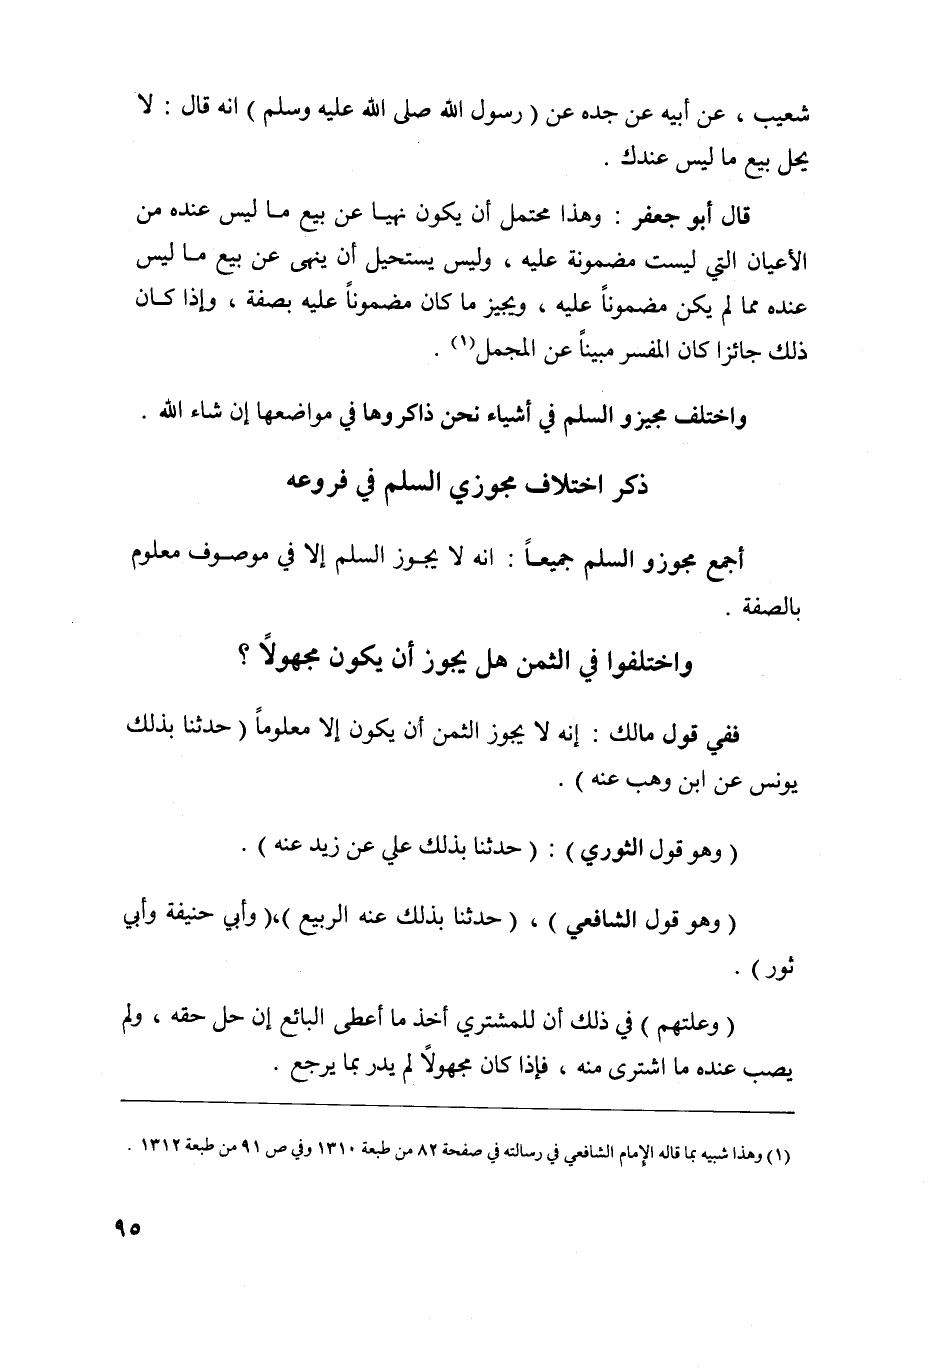 شعيب ، عن أبيه عن جده عن ( رسول الله صلى الله عليه وسلم ) انه قال : لا
يحل بيع ما ليس عندك .
قال أبو جعفر : وهذا محتمل أن يكون نهيا عن بيع ما ليس عنده من
الأعيان التي ليست مضمونة عليه ، وليس يستحيل أن ينهى عن بيع ما ليس
عنده مما لم يكن مضموناً عليه ، ويجيز ما كان مضموناً عليه بصفة ، وإذا كان
ذلك جائزا كان المفسر مبيناً عن المجمل(١) .
واختلف مجيزو السلم في أشياء نحن ذاكروها في مواضعها إن شاء الله .
ذكر اختلاف مجوزي السلم في فروعه
أجمع مجوزو السلم جميعاً : انه لا يجوز السلم إلا في موصوف معلوم
بالصفة .
واختلفوا في الثمن هل يجوز أن يكون مجهولاً ؟
ففي قول مالك : إنه لا يجوز الثمن أن يكون إلا معلوماً ( حدثنا بذلك
يونس عن ابن وهب عنه ) .
( وهو قول الثوري ) : ( حدثنا بذلك علي عن زيد عنه ) .
( وهو قول الشافعي ) ، ( حدثنا بذلك عنه الربيع )،( وأبي حنيفة وأبي
ثور ) .
( وعلتهم ) في ذلك أن للمشتري أخذ ما أعطى البائع إن حل حقه ، ولم
يصب عنده ما اشترى منه ، فإذا كان مجهولاً لم يدر بما يرجع .
(١) وهذا شبيه بما قاله الإمام الشافعي في رسالته في صفحة ٨٢ من طبعة ١٣١٠ وفي ص ٩١ من طبعة ١٣١٢ .
٩٥